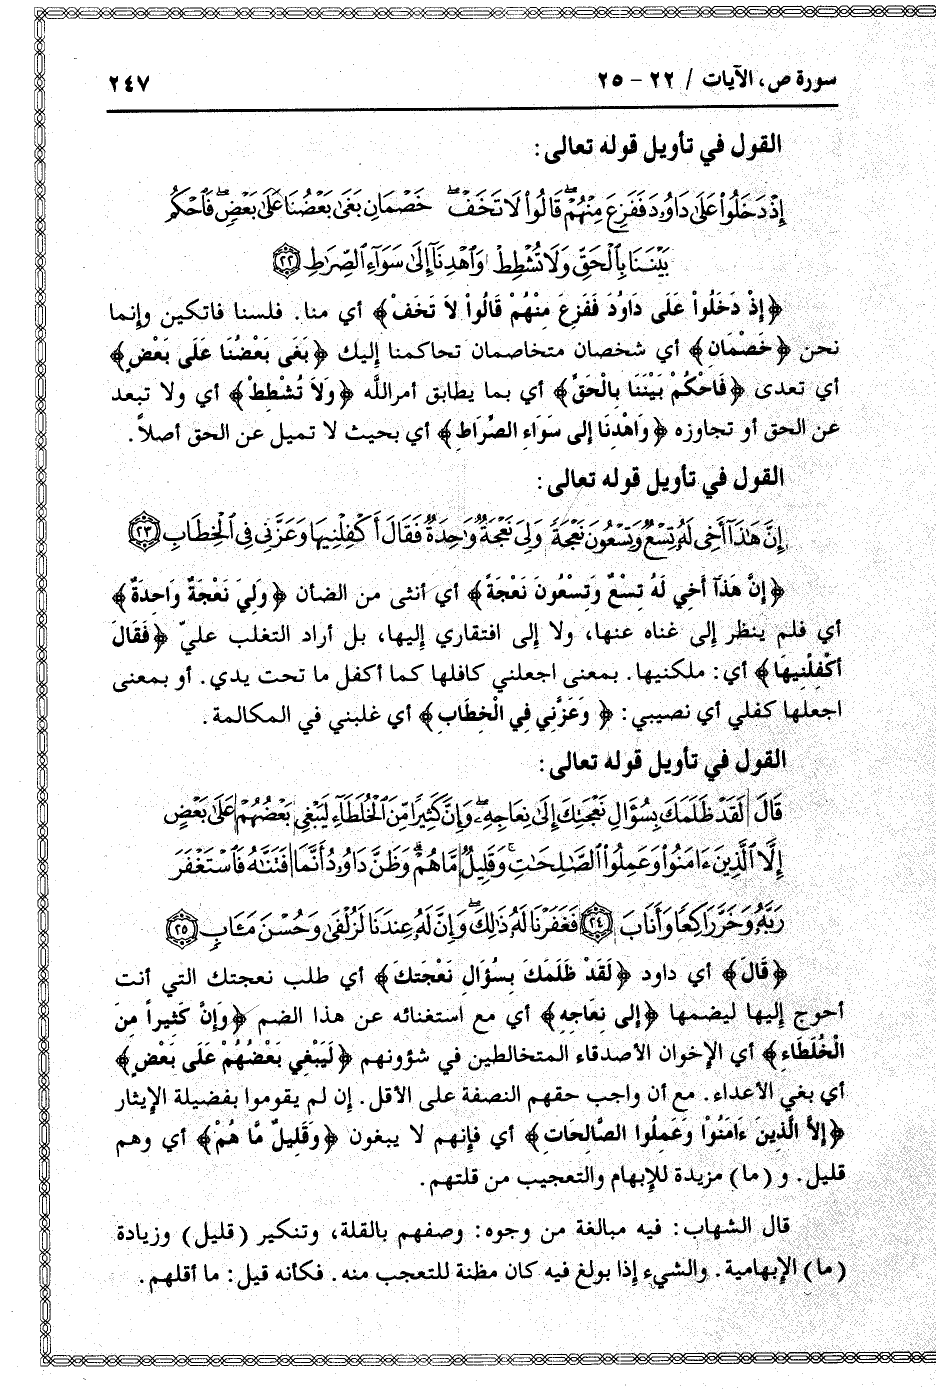 سورة ص، الآيات / ٢٢ - ٢٥ ٢٤٧
القول في تأويل قوله تعالى:
إِذْ دَخَلُواْ عَلَىٰ دَاوُۥدَ فَفَزِعَ مِنْهُمْۖ قَالُواْ لَا تَخَفْۖ خَصْمَانِ بَغَىٰ بَعْضُنَا عَلَىٰ بَعْضٖ فَٱحْكُم
بَيْنَنَا بِٱلْحَقِّ وَلَا تُشْطِطْ وَٱهْدِنَآ إِلَىٰ سَوَآءِ ٱلصِّرَٰطِ ۝٢٢
﴿إِذْ دَخَلُواْ عَلَى دَاوُدَ فَفَزِعَ مِنْهُمْ قَالُواْ لاَ تَخَفْ﴾ أي منا. فلسنا فاتكين وإنما
نحن ﴿خَصْمَانِ﴾ أي شخصان متخاصمان تحاكمنا إليك ﴿بَغَى بَعْضُنَا عَلَى بَعْضٍ﴾
أي تعدى ﴿فَاحْكُمْ بَيْنَنَا بِالْحَقِّ﴾ أي بما يطابق أمرالله ﴿وَلاَ تُشْطِطْ﴾ أي ولا تبعد
عن الحق أو تجاوزه ﴿وَاهْدِنَا إلى سَوَاءِ الصِّرَاطِ﴾ أي بحيث لا تميل عن الحق أصلاً.
القول في تأويل قوله تعالى:
إِنَّ هَٰذَآ أَخِى لَهُۥ تِسْعٌ وَتِسْعُونَ نَعْجَةً وَلِىَ نَعْجَةٌ وَٰحِدَةٌ فَقَالَ أَكْفِلْنِيهَا وَعَزَّنِى فِى ٱلْخِطَابِ ۝٢٣
﴿إِنَّ هَذَآ أَخِي لَهُ تِسْعٌ وَتِسْعُونَ نَعْجَةً﴾ أي أنثى من الضأن ﴿وَلِيَ نَعْجَةٌ وَاحِدَةٌ﴾
أي فلم ينظر إلى غناه عنها، ولا إلى افتقاري إليها، بل أراد التغلب عليّ ﴿فَقَالَ
أكْفِلْنِيهَا﴾ أي: ملكنيها. بمعنى اجعلني كافلها كما أكفل ما تحت يدي. أو بمعنى
اجعلها كفلي أي نصيبي: ﴿وَعَزَّنِي فِي الْخِطَابِ﴾ أي غلبني في المكالمة.
القول في تأويل قوله تعالى:
قَالَ لَقَدْ ظَلَمَكَ بِسُؤَالِ نَعْجَتِكَ إِلَىٰ نِعَاجِهِۦۖ وَإِنَّ كَثِيرًا مِّنَ ٱلْخُلَطَآءِ لَيَبْغِى بَعْضُهُمْ عَلَىٰ بَعْضٍ
إِلَّا ٱلَّذِينَ ءَامَنُواْ وَعَمِلُواْ ٱلصَّٰلِحَٰتِ وَقَلِيلٌ مَّا هُمْۗ وَظَنَّ دَاوُۥدُ أَنَّمَا فَتَنَّٰهُ فَٱسْتَغْفَرَ
رَبَّهُۥ وَخَرَّ رَاكِعًا وَأَنَابَ ۝٢٤ فَغَفَرْنَا لَهُۥ ذَٰلِكَۖ وَإِنَّ لَهُۥ عِندَنَا لَزُلْفَىٰ وَحُسْنَ مَـَٔابٍ ۝٢٥
﴿قَالَ﴾ أي داود ﴿لَقَدْ ظَلَمَكَ بِسُؤَالِ نَعْجَتِكَ﴾ أي طلب نعجتك التي أنت
أحوج إليها ليضمها ﴿إلى نِعَاجِهِ﴾ أي مع استغنائه عن هذا الضم ﴿وَإِنَّ كَثِيراً مِنَ
الْخُلَطَاءِ﴾ أي الإخوان الأصدقاء المتخالطين في شؤونهم ﴿لَيَبْغِي بَعْضُهُمْ عَلَى بَعْضٍ﴾
أي بغي الأعداء. مع أن واجب حقهم النصفة على الأقل. إن لم يقوموا بفضيلة الإيثار
﴿إلاَّ الَّذِينَ ءَامَنُوْا وَعَمِلُوا الصَّالِحَاتِ﴾ أي فإنهم لا يبغون ﴿وَقَلِيلٌ مَّا هُمْ﴾ أي وهم
قليل. و (ما) مزيدة للإبهام والتعجيب من قلتهم.
قال الشهاب: فيه مبالغة من وجوه: وصفهم بالقلة، وتنكير (قليل) وزيادة
(ما) الإبهامية. والشيء إذا بولغ فيه كان مظنة للتعجب منه. فكأنه قيل: ما أقلهم.